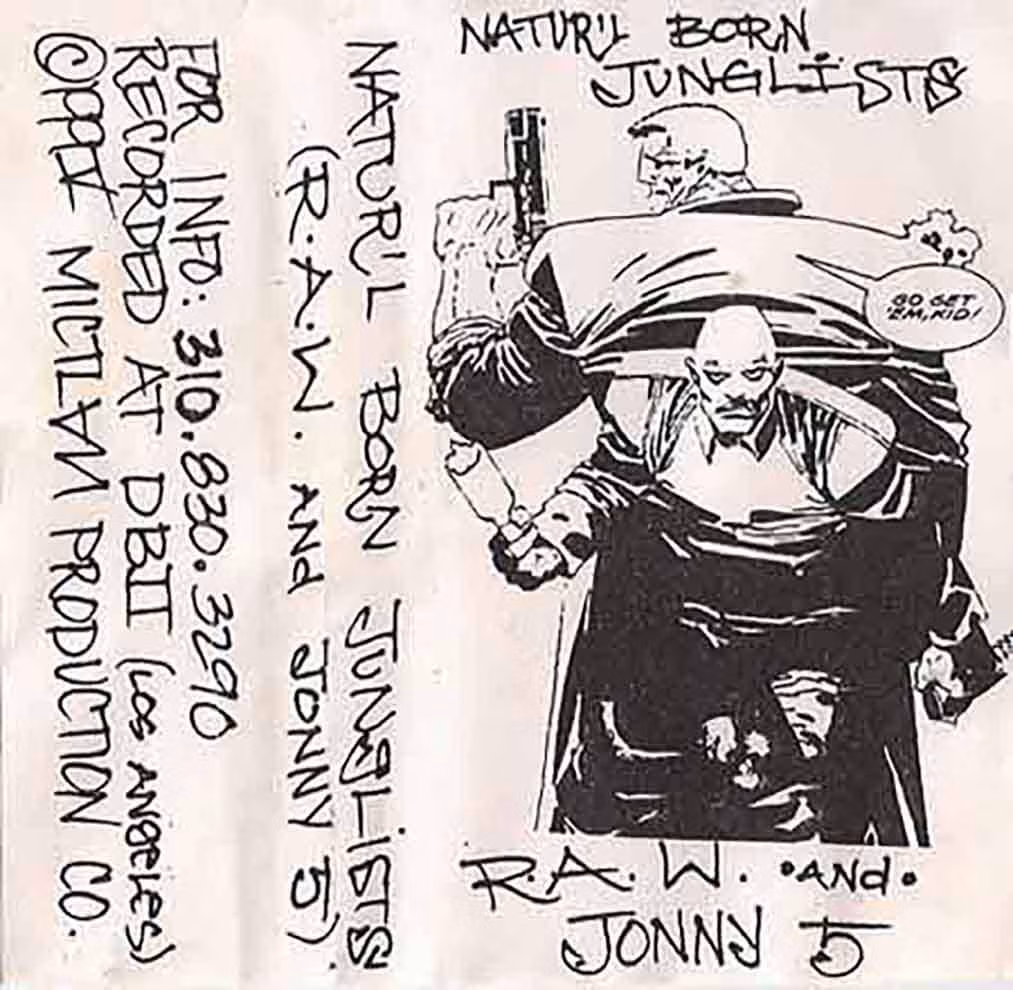 NATUR'L BORN
JUNGLISTS
GO GET
'EM, KID!
R.A.W. •AND•
JONNY 5
NATUR'L BORN JUNGLISTS
(R.A.W. AND JONNY 5)
FOR INFO: 310.820.3290
RECORDED AT DBII (LOS ANGELES)
©1994 MICTLAN PRODUCTION CO.